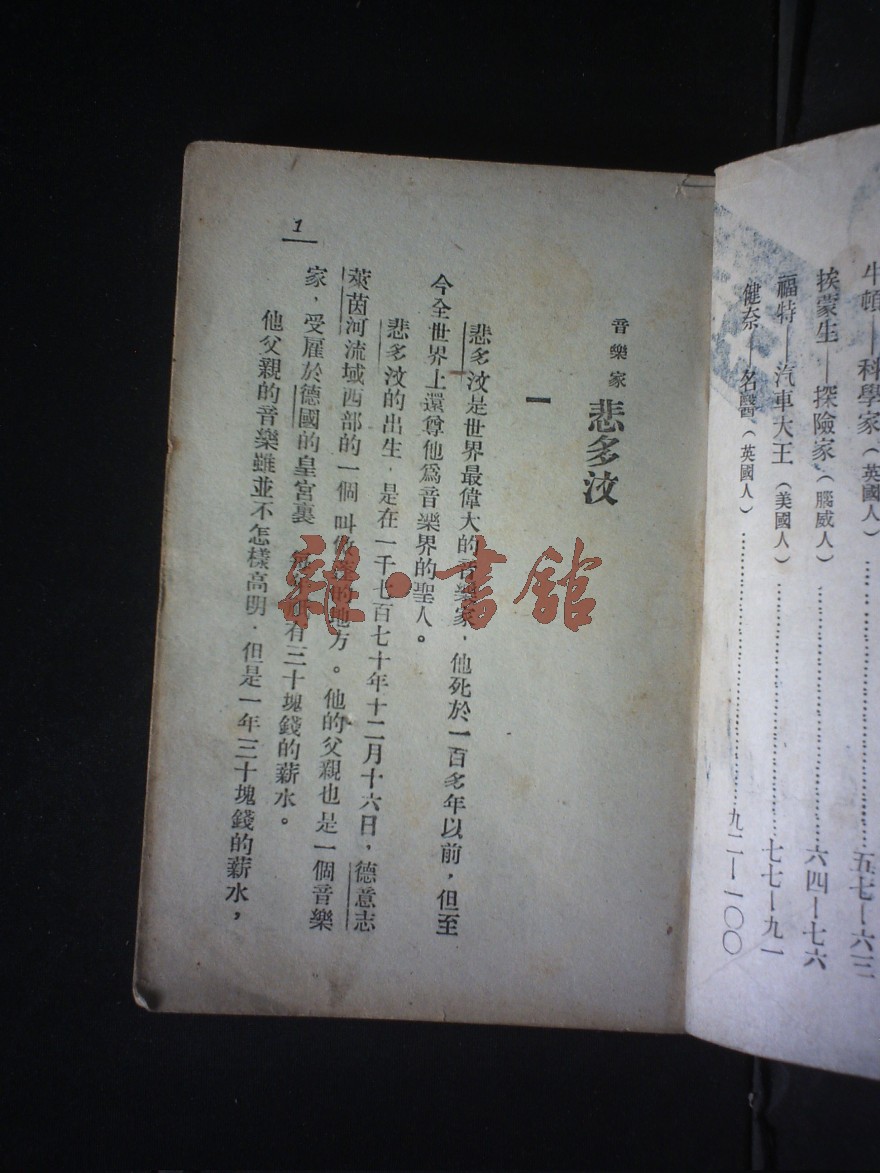 牛頓——科學家（英國人）……五七—六三
挨蒙生——探險家（腦威人）……六四—七六
福特——汽車大王（美國人）……七七—九一
健奈——名醫（英國人）……九二—一〇〇
音樂家 悲多汶
一
悲多汶是世界最偉大的音樂家，他死於一百多年以前，但至
今全世界上還尊他爲音樂界的聖人。
悲多汶的出生，是在一千七百七十年十二月十六日，德意志
萊茵河流域西部的一個 叫 的地方。他的父親也是一個音樂
家，受雇於德國的皇宮裏 有三十塊錢的薪水。
他父親的音樂雖並不怎樣高明，但是一年三十塊錢的薪水，
1
雜·書館